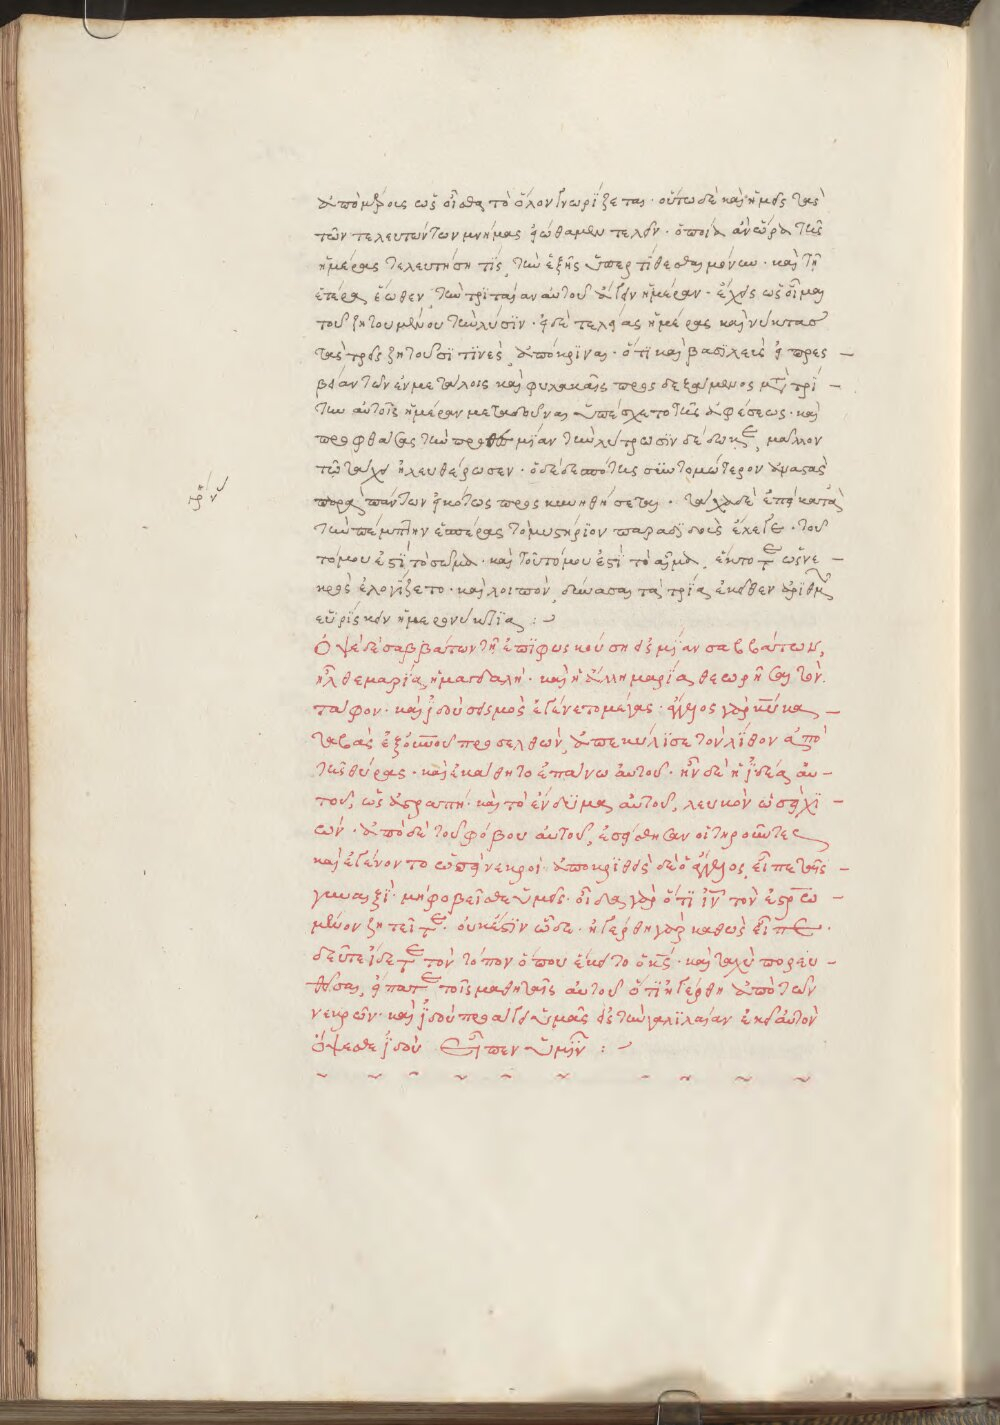 ἀπὸ μέρους ὡς οἶσθα τὸ ὅλον γνωρίζεται· οὕτω δὲ καὶ ἡμεῖς τὰς
τῶν τελευτώντων μνήμας εἰώθαμεν τελεῖν· ὁποία ἂν ὥρα τῆς
ἡμέρας τελευτήσῃ τίς, τὴν ἑξῆς ὑπερτίθεσθαι μόνην· καὶ τῇ
ἑτέρᾳ ἕωθεν, τὴν τρίταίαν αὐτοῦ ἄγειν ἡμέραν· ἔχεις ὡς οἶμαι
τοῦ ζητουμένου τὴν λύσϊν· εἰ δὲ τελείας ἡμέρας καὶ νύκτασ
τὰς τρεῖς ζητοῦσϊ τϊνὲς, ἀπόκρϊναι· ὅτϊ καὶ βασϊλεὺς εἰ πρεσ
βείαν τῶν ἐν μετάλοις καὶ φυλακαῖς προσδεξάμενος μετὰ τρί
την αὐτοῖς ἡμέραν μεταδοῦναι ὑπέσχετο τῆς ἀφέσεως· καὶ
προφθάσας τὴν πρὸ μϊᾶν τὴν λύτρωσϊν δέδωκε, μᾶλλον
τῷ τάχει ἠλευθέρωσεν· ὁ δὲ δεσπότης συντομώτερον ἀναστὰς
πάντων εἰκότως προσκυνηθήσεται· τάχα δὲ ἐπεὶ κατὰ
τὴν πέμπτην ἑσπέρας τὸ μυστήρϊον παραδϊδοὺς ἔλεγε· τοῦ
τό μου ἐστϊ τὸ σῶμα· καὶ τοῦτό μου ἐστὶ τὸ αἷμα, ἔκτοτε ὡς νε
κρὸς ἐλογίζετο· καὶ λοιπὸν, συνάσαι τὰ τρία ἐκεῖθεν ἀρϊθμεῖν
εὑρίσκειν ἡμερονύκτϊα :
Ὀψὲ δὲ σαββάτων τῇ ἐπϊφωσκούσῃ εἰς μϊαν σαββάτων,
ἦλθε μαρία ἡ μαγδαλῃ· καὶ ἡ ἄλλη μαρία θεωρῆσαι τὸν
τάφον· καὶ ἰδοὺ σεισμὸς ἐγένετο μέγας· ἄγγελος γὰρ κυ κα
ταβὰς ἐξ οὐνοῦ προσελθὼν, ἀπεκύλισε τὸν λίθον ἀπὸ
τῆς θύρας· καὶ ἐκάθητο ἐπάνω αὐτοῦ· ἦν δὲ ἡ ἰδέα αὐ
τοῦ, ὡς ἀστραπή· καὶ τὸ ἔνδυμα αὐτοῦ, λευκὸν ὡσεὶ χϊ
ών· ἀπὸ δὲ τοῦ φόβου αὐτοῦ, ἐσείσθησαν οἱ τηροῦντες
καὶ ἐγένοντο ὡσεὶ νεκροί· ἀποκριθεὶς δὲ ὁ ἄγγελος, εἶπε ταῖς
γυναιξὶ· μὴ φοβεῖσθε ὑμεῖς· οἶδα γὰρ ὅτϊ ιν τὸν ἐστρω
μένον ζητεῖτε· οὐκ ἔστϊν ὧδε· ἠγέρθη γὰρ καθὼς εἶπε·
δεῦτε ἴδετε τὸν τόπον ὅπου ἔκειτο ὁ κς· καὶ ταχὺ πορευ
θεῖσαι, εἴπατε τοῖς μαθηταῖς αὐτοῦ ὅτϊ ἠγέρθη ἀπὸ τῶν
νεκρῶν· καὶ ἰδοὺ προάγει ὑμᾶς εἰς τὴν γαλϊλαίαν ἐκεῖ αὐτὸν
ὄψεσθε ἰδοὺ εἶπεν ὑμῖν :